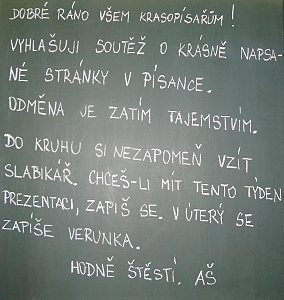 DOBRÉ RÁNO VŠEM KRASOPÍSAŘŮM !
VYHLAŠUJI SOUTĚŽ O KRÁSNĚ NAPSA-
NÉ STRÁNKY V PÍSANCE.
ODMĚNA JE ZATÍM TAJEMSTVÍM.
DO KRUHU SI NEZAPOMEŇ VZÍT
SLABIKÁŘ. CHCEŠ-LI MÍT TENTO TÝDEN
PREZENTACI, ZAPIŠ SE. V ÚTERÝ SE
ZAPÍŠE VERUNKA.
HODNĚ ŠTĚSTÍ. AŠ